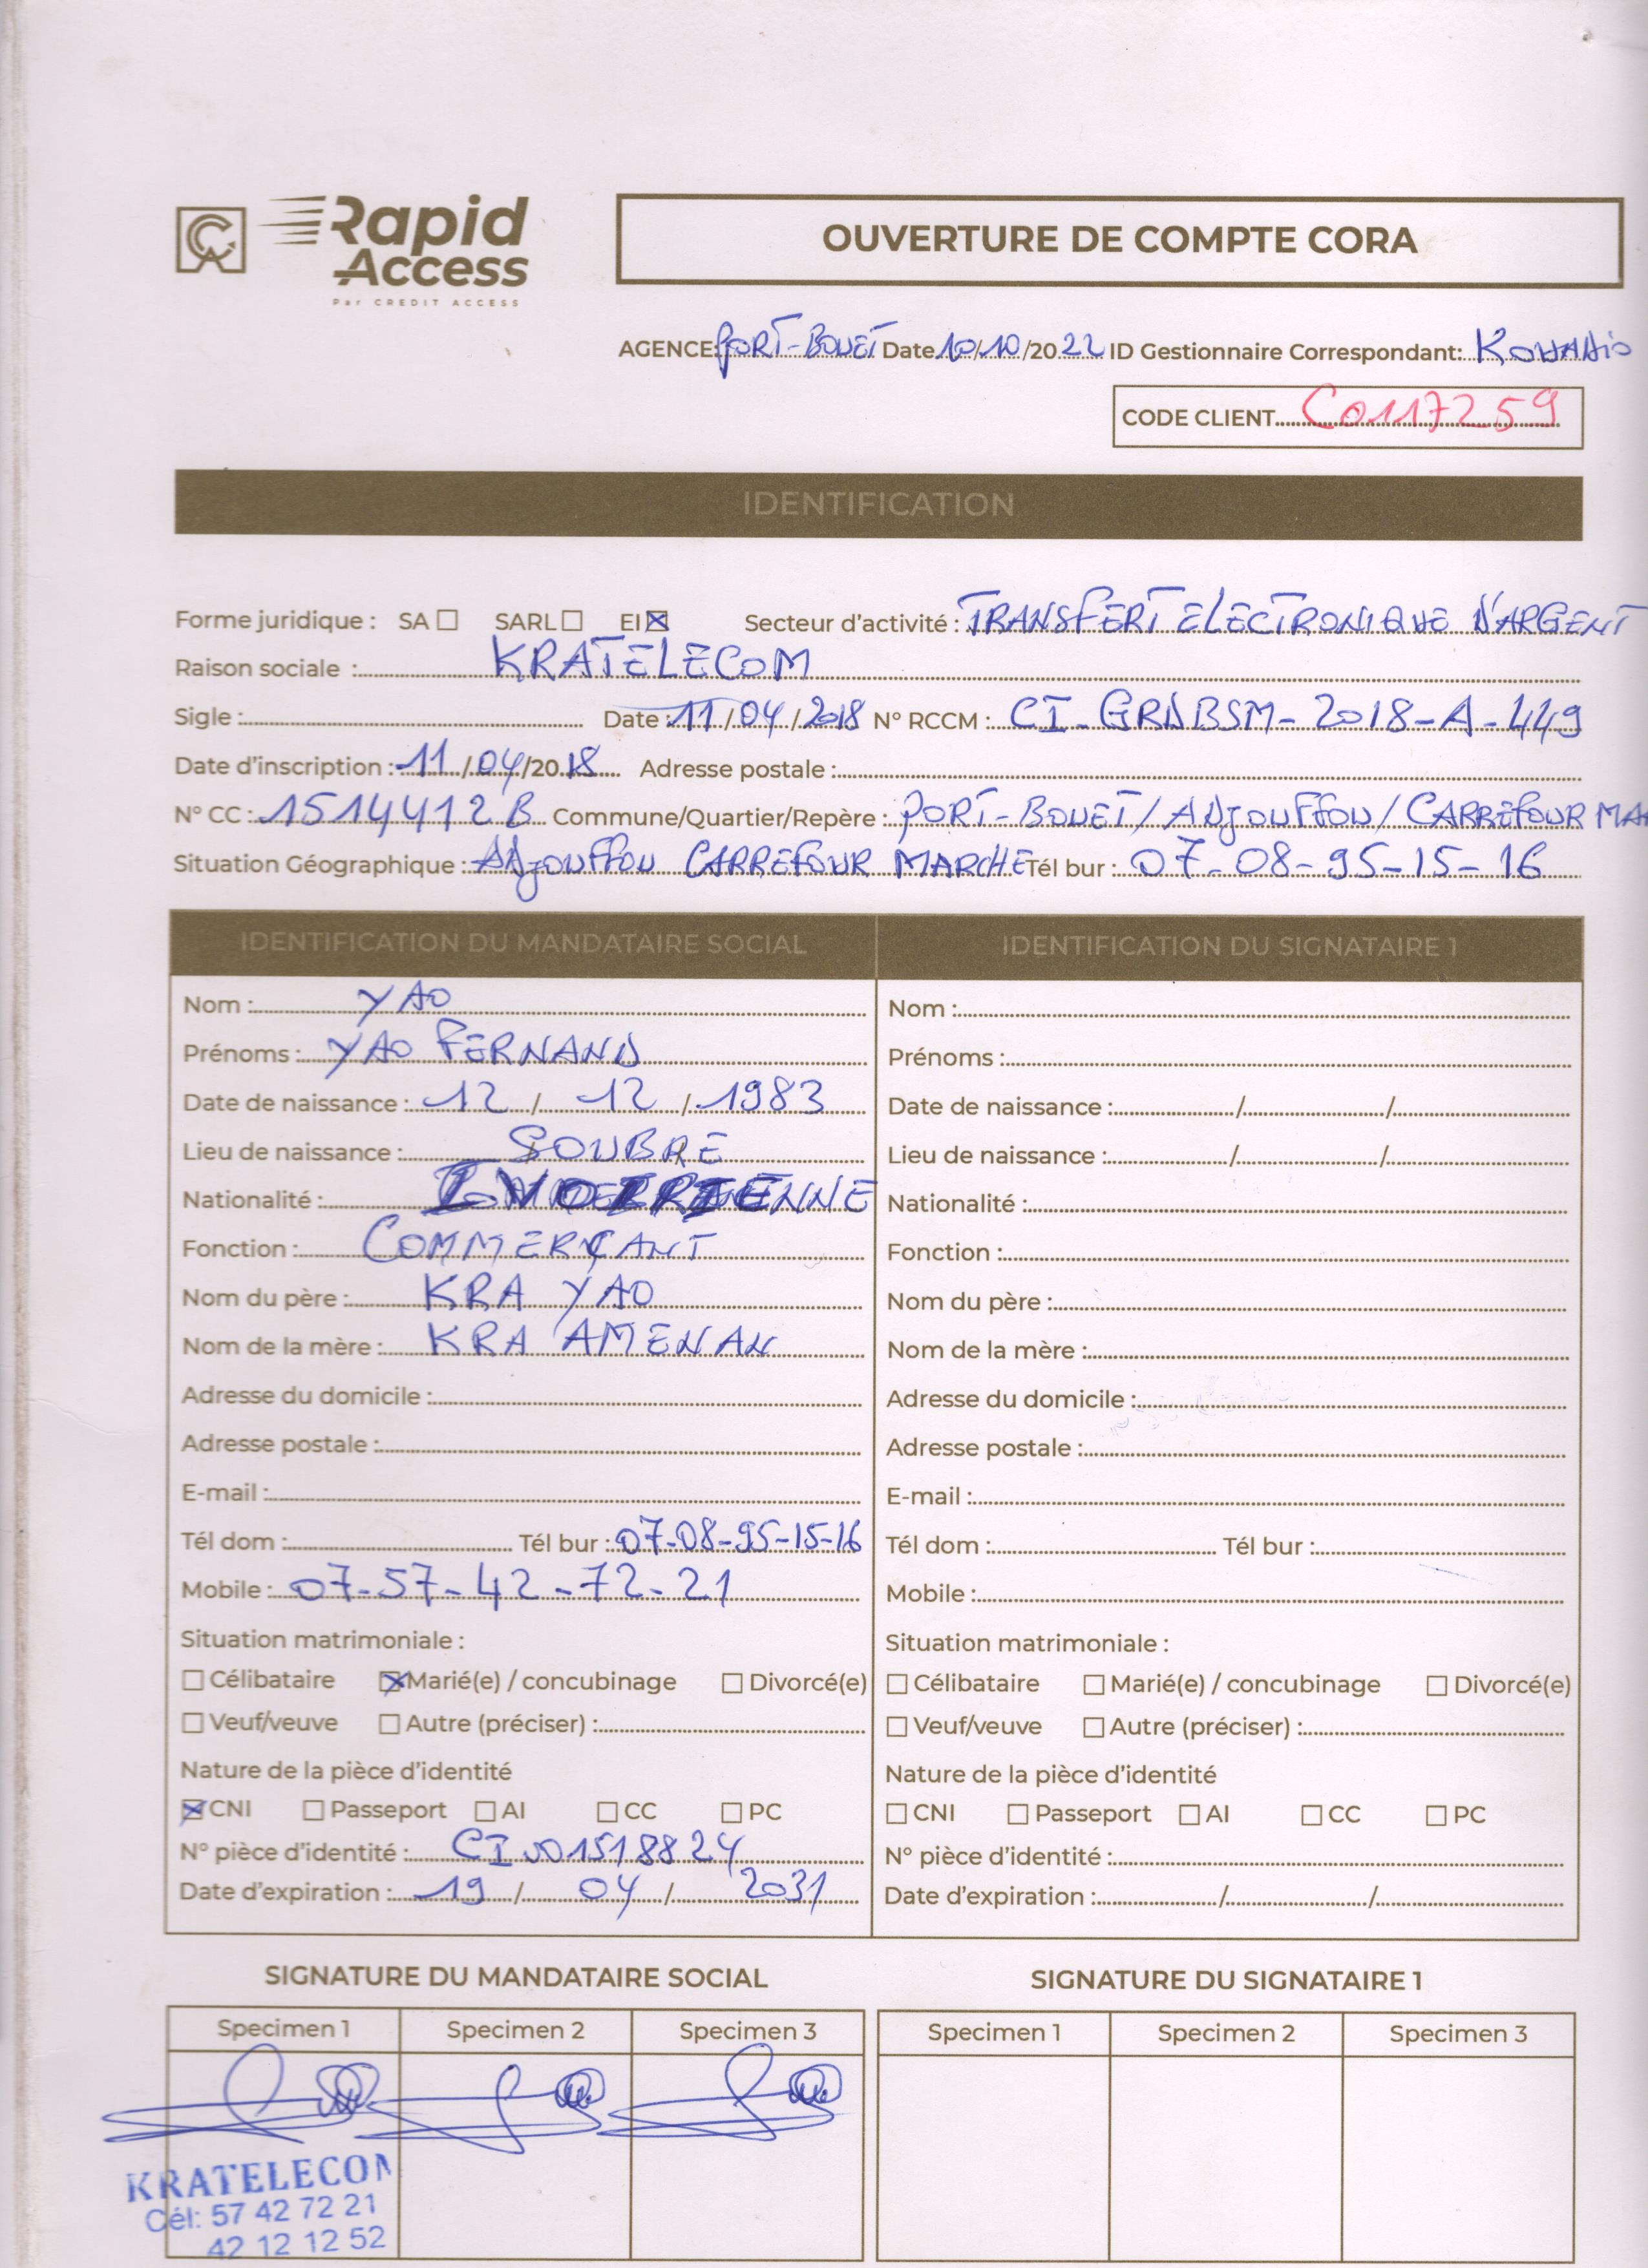 Rapid
Access
Par CREDIT ACCESS
OUVERTURE DE COMPTE CORA
AGENCE: PORT-BOUET Date 10/10/2022 ID Gestionnaire Correspondant:
CODE CLIENT C0117259
IDENTIFICATION
Forme juridique : SA ☐ SARL ☐ EI ☒ Secteur d'activité : TRANSFERT ELECTRONIQUE D'ARGENT
Raison sociale : KRATELECOM
Sigle : Date : 11/04/2018 N° RCCM : CI-GRDBSM-2018-A-449
Date d'inscription : 11/04/2018 Adresse postale :
N° CC : 1514412 B Commune/Quartier/Repère : PORT-BOUET/ADJOUFFOU/CARREFOUR MA
Situation Géographique : ADJOUFFOU CARREFOUR MARCHE Tél bur : 07-08-95-15-16
IDENTIFICATION DU MANDATAIRE SOCIAL IDENTIFICATION DU SIGNATAIRE 1
Nom : YAO Nom :
Prénoms : YAO FERNAND Prénoms :
Date de naissance : 12 / 12 / 1983 Date de naissance : / /
Lieu de naissance : SOUBRE Lieu de naissance : / /
Nationalité : IVOIRIENNE Nationalité :
Fonction : COMMERÇANT Fonction :
Nom du père : KRA YAO Nom du père :
Nom de la mère : KRA AMENAN Nom de la mère :
Adresse du domicile : Adresse du domicile :
Adresse postale : Adresse postale :
E-mail : E-mail :
Tél dom : Tél bur : 07-08-95-15-16 Tél dom : Tél bur :
Mobile : 07-57-42-72-21 Mobile :
Situation matrimoniale : Situation matrimoniale :
☐ Célibataire ☒ Marié(e) / concubinage ☐ Divorcé(e) ☐ Célibataire ☐ Marié(e) / concubinage ☐ Divorcé(e)
☐ Veuf/veuve ☐ Autre (préciser) : ☐ Veuf/veuve ☐ Autre (préciser) :
Nature de la pièce d'identité Nature de la pièce d'identité
☒ CNI ☐ Passeport ☐ AI ☐ CC ☐ PC ☐ CNI ☐ Passeport ☐ AI ☐ CC ☐ PC
N° pièce d'identité : CI001518824 N° pièce d'identité :
Date d'expiration : 19 / 04 / 2031 Date d'expiration : / /
SIGNATURE DU MANDATAIRE SOCIAL SIGNATURE DU SIGNATAIRE 1
Specimen 1 Specimen 2 Specimen 3 Specimen 1 Specimen 2 Specimen 3
KRATELECOM
Cél: 57 42 72 21
42 12 12 52